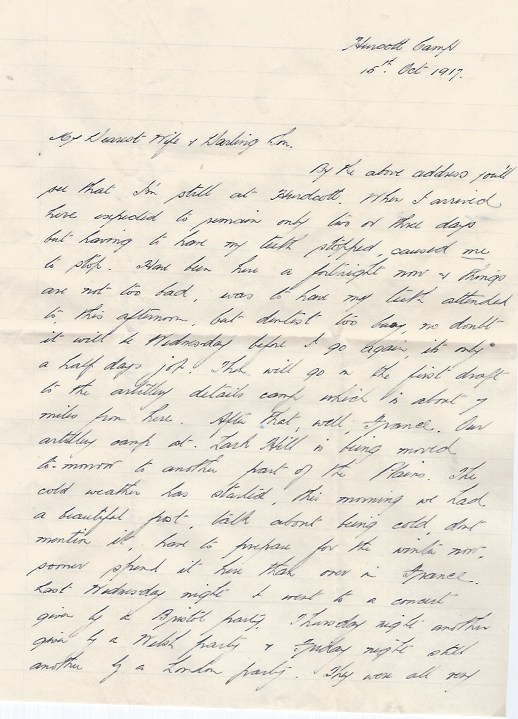 Hurdcott Camp
15th Oct 1917.
My Dearest Wife & Darling Son.
By the above address you'll
see that I'm still at Hurdcott. When I arrived
here expected to remain only two or three days
but having to have my teeth stopped, caused me
to stop. Have been here a fortnight now & things
are not too bad, was to have my teeth attended
to this afternoon, but dentist too busy, no doubt
it will be Wednesday before I go again, its only
a half days job. Then will go on the first draft
to the artillery details camp which is about 7
miles from here. After that, well, France. Our
artillery camp at Lark Hill is being moved
to-morrow to another part of the Plains. The
cold weather has started, this morning we had
a beautiful frost, talk about being cold, dont
mention it, have to prepare for the winter now,
sooner spend it here than over in France.
Last Wednesday night I went to a concert
given by a Bristol party. Thursday night another
given by a Welsh party & Friday night still
another by a London party. They were all very